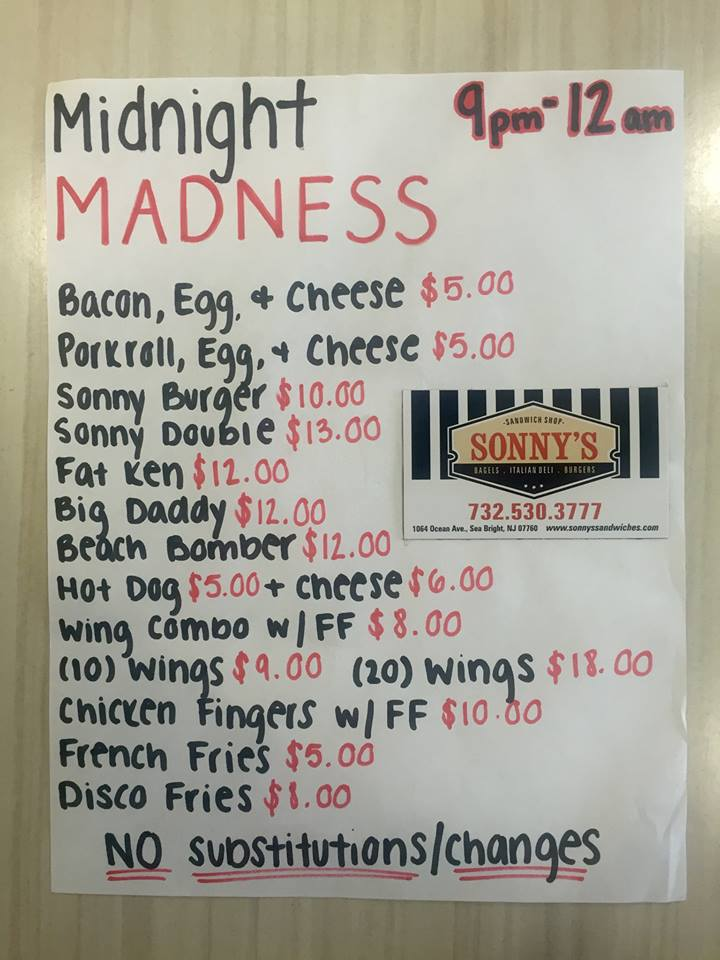 Midnight 9pm-12am
MADNESS
Bacon, Egg, + Cheese $5.00
Porkroll, Egg, + Cheese $5.00
Sonny Burger $10.00
Sonny Double $13.00
Fat Ken $12.00
Big Daddy $12.00
Beach Bomber $12.00
Hot Dog $5.00 + cheese $6.00
Wing Combo w/FF $8.00
(10) Wings $9.00 (20) Wings $18.00
Chicken Fingers w/FF $10.00
French Fries $5.00
Disco Fries $8.00
NO substitutions/changes
-SANDWICH SHOP-
SONNY'S
BAGELS . ITALIAN DELI . BURGERS
732.530.3777
1064 Ocean Ave., Sea Bright, NJ 07760 www.sonnyssandwiches.com